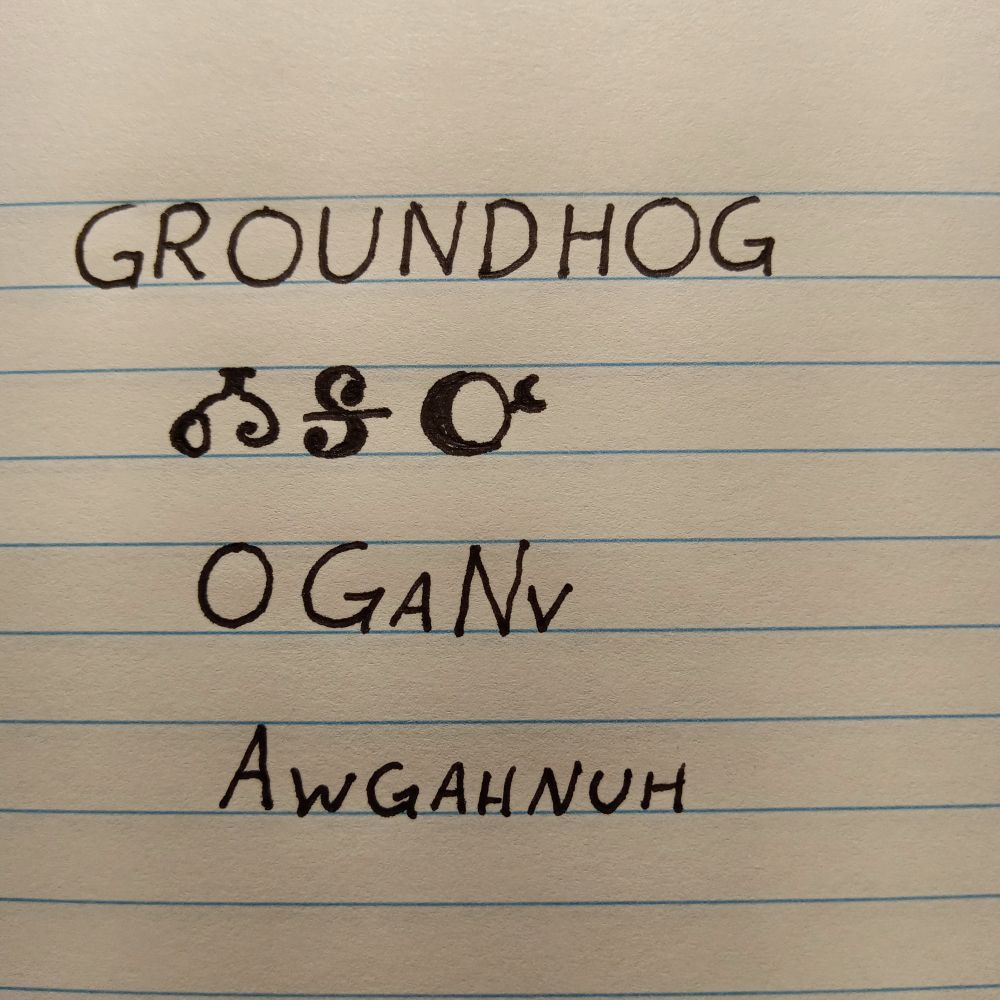 GROUNDHOG
ᎣᎦᎾ
OGANV
AWGAHNUH